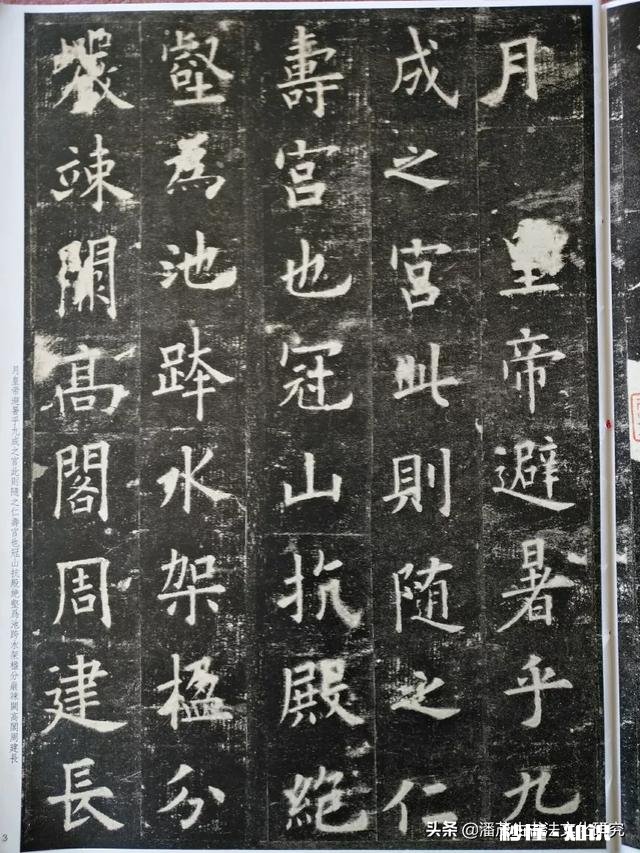 月皇帝避暑乎九
成之宮此則随之仁
壽宮也冠山抗殿絕
壑為池跨水架楹分
巖竦闕高閣周建長
月皇帝避暑乎九成之宮此則隨之仁壽宮也冠山抗殿絶壑爲池跨水架楹分巖竦闕高閣周建長
3
头条 @潘